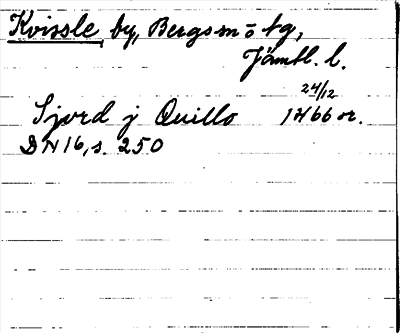 Kvissle, by, Bergs sn o tg,
Jämtl. l.
24/12
Sjord j Quillo 1466 or.
DN 16, s. 250